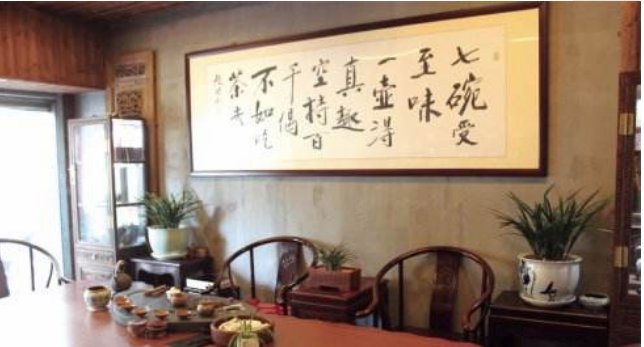 七碗受
至味
一壶得
真趣
空持百
千偈
不如吃
茶去